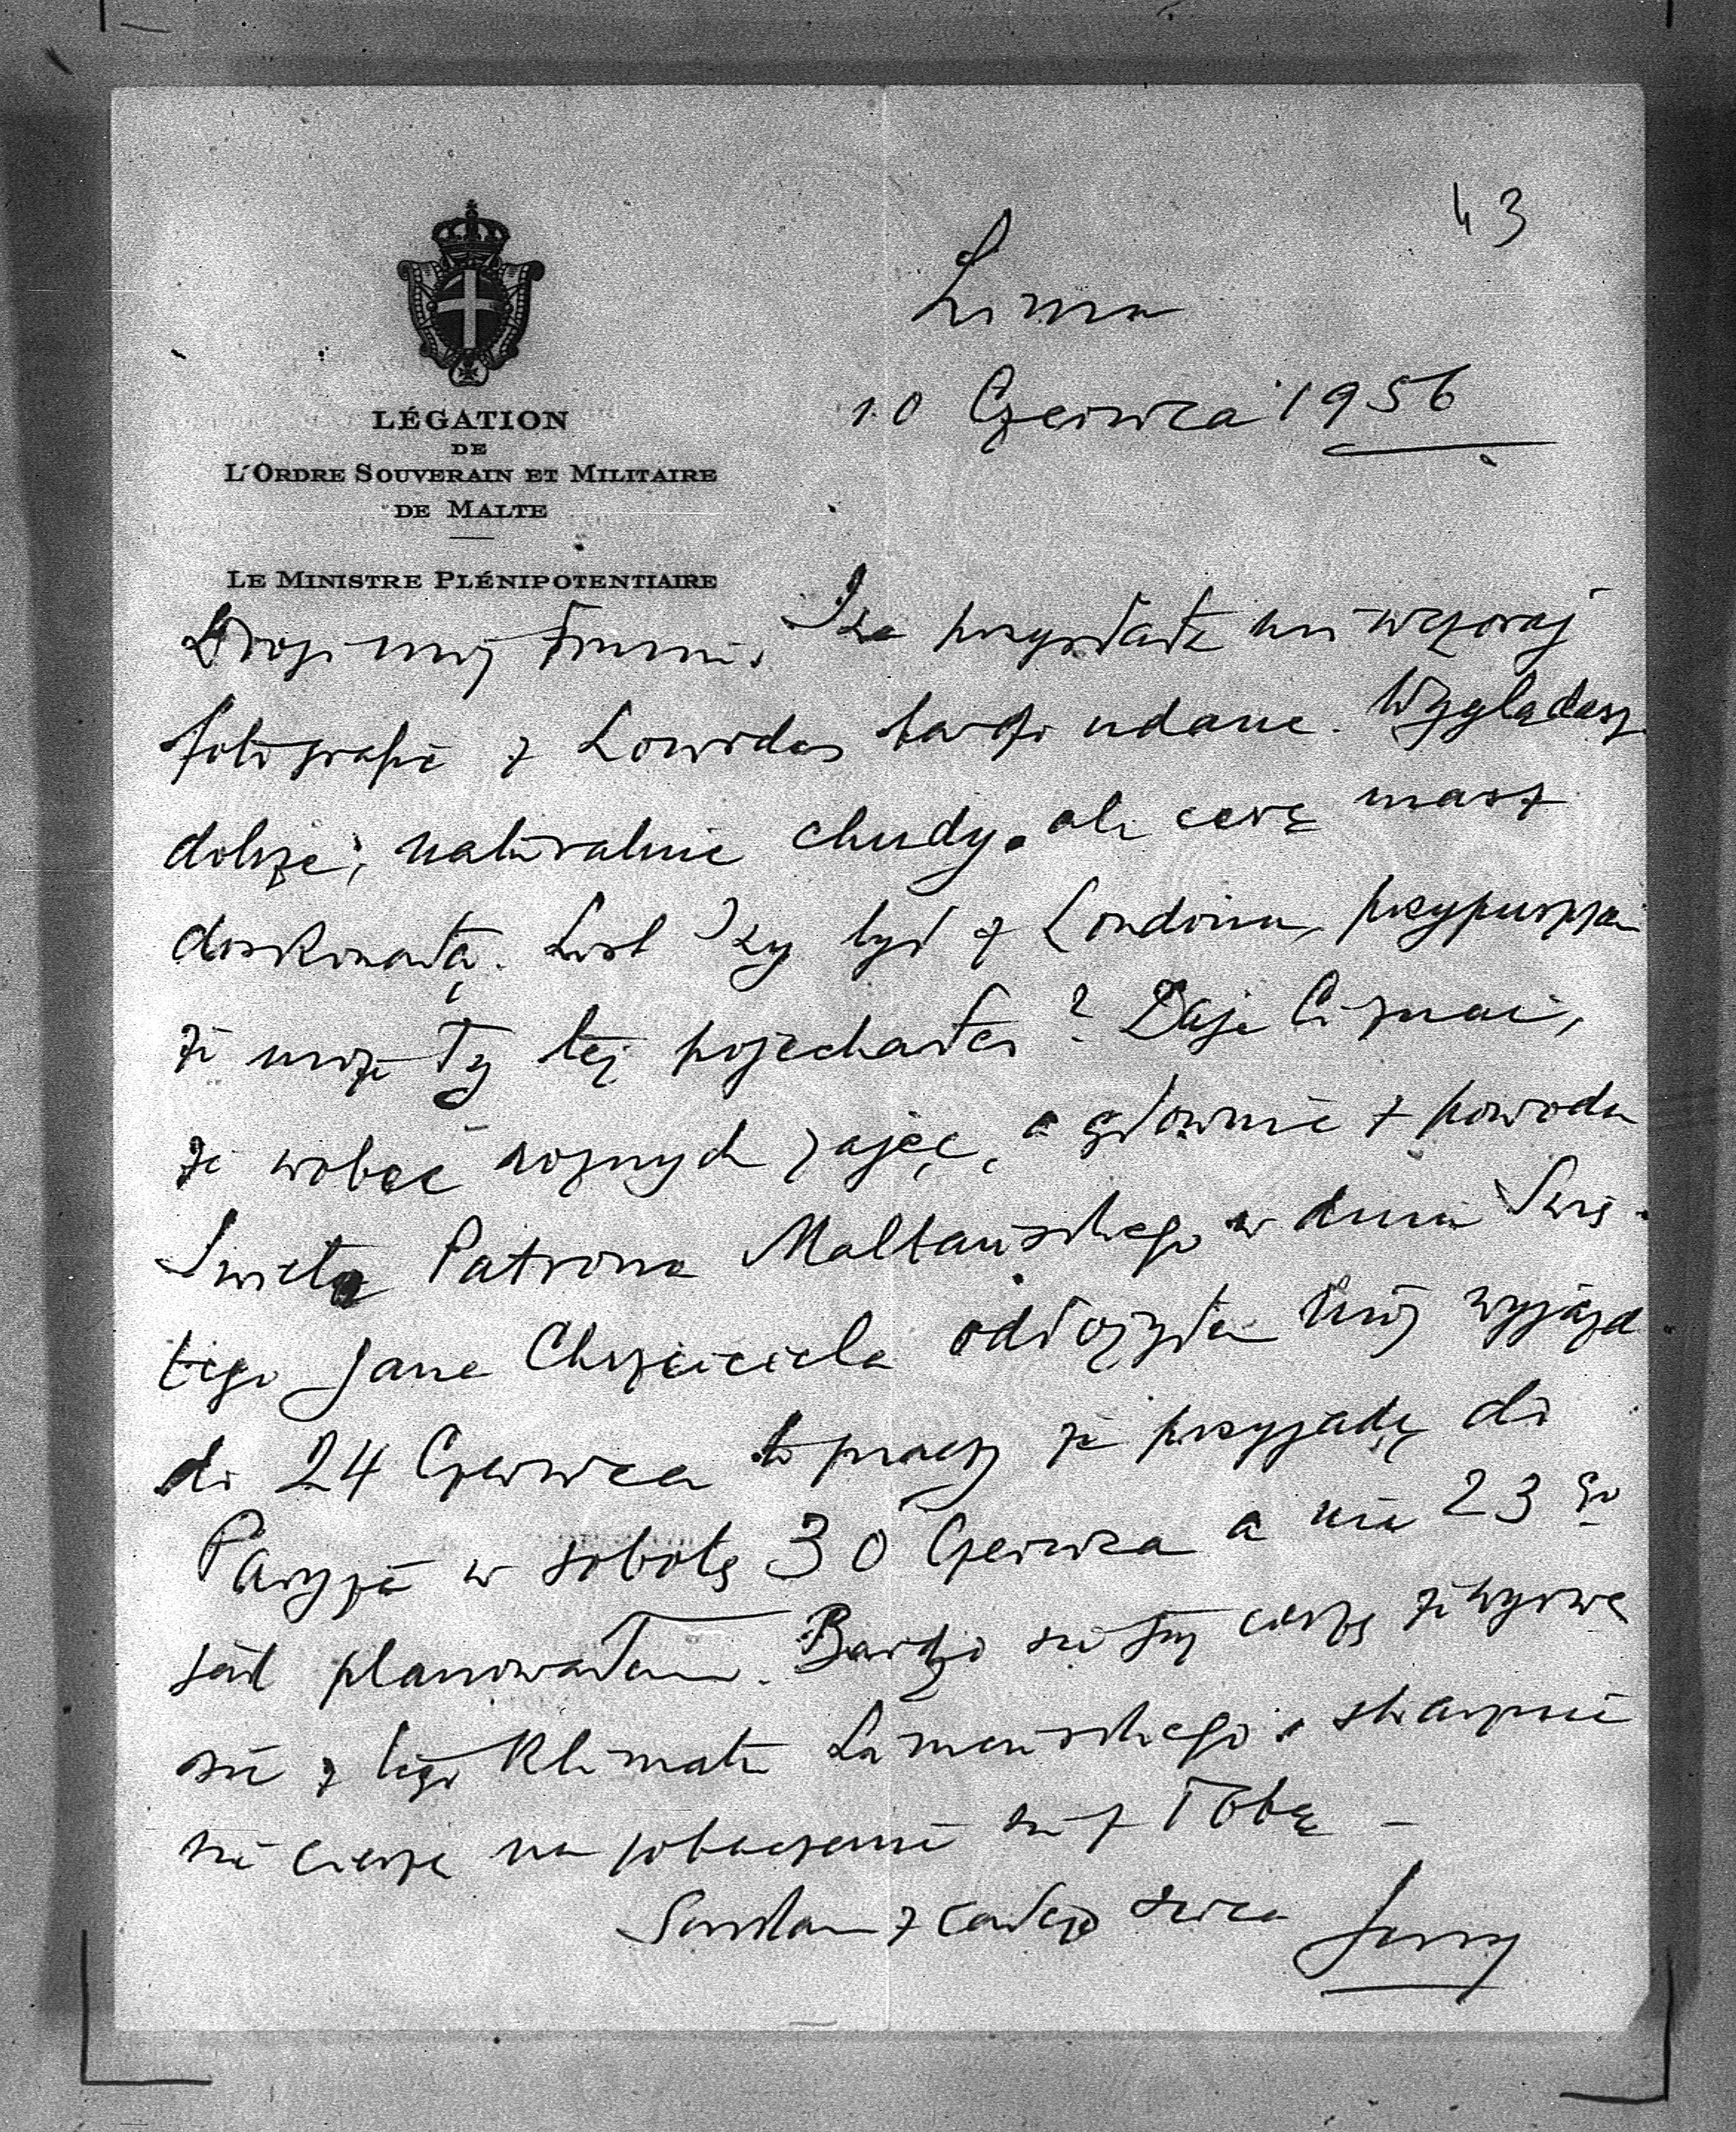 43
Lima
10 Czerwca 1956
LÉGATION
DE
L'ORDRE SOUVERAIN ET MILITAIRE
DE MALTE
LE MINISTRE PLÉNIPOTENTIAIRE
Drogi mój Iza przysłała mi wczoraj
fotografie z Lourdes bardzo udane. Wyglądasz
dobrze, naturalnie chudy, ale cerę masz
doskonałą. List Izy był z Londinu, przypuszczam
że może Ty też pojechałeś? Daję Ci znać,
że wobec rożnych zajęć, a głownie z powodu
Swięta Patrona Maltańskiego w dniu Swię-
tego Jana Chrzciciela odłożyłem mój wyjazd
do 24 Czerwca to znaczy że przyjadę do
Paryża w sobotę 30 Czerwca a nie 23 go
jak planowałem. Bardzo się cieszę że wyrwę
się z tego klimatu Limeńskiego, a strasznie
się cieszę na zobaczenie się z Tobą –
z całego serca Jerzy